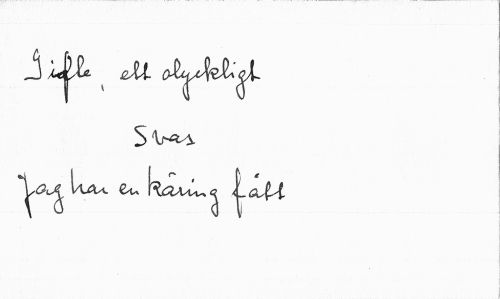 Gifle, ett olyckligt
Svar
Jag har en käring fått